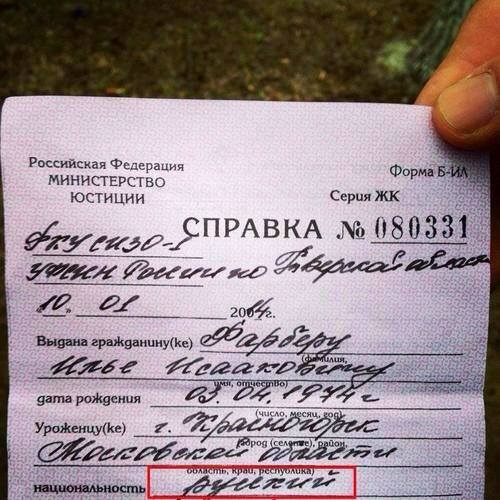 Российская Федерация
МИНИСТЕРСТВО
ЮСТИЦИИ
Форма Б-ИЛ
Серия ЖК
СПРАВКА № 080331
ФКУ СИЗО-1
УФСИН России по Тверской области
"10" 01 2014г.
Выдана гражданину(ке) Фарберу
(фамилия,
Илье Исааковичу
имя, отчество)
дата рождения 03.04.1974г
(число, месяц, год)
Уроженцу(ке) г. Красногорск
(город (селение), район,
Московской области
область, край, республика)
национальность руский